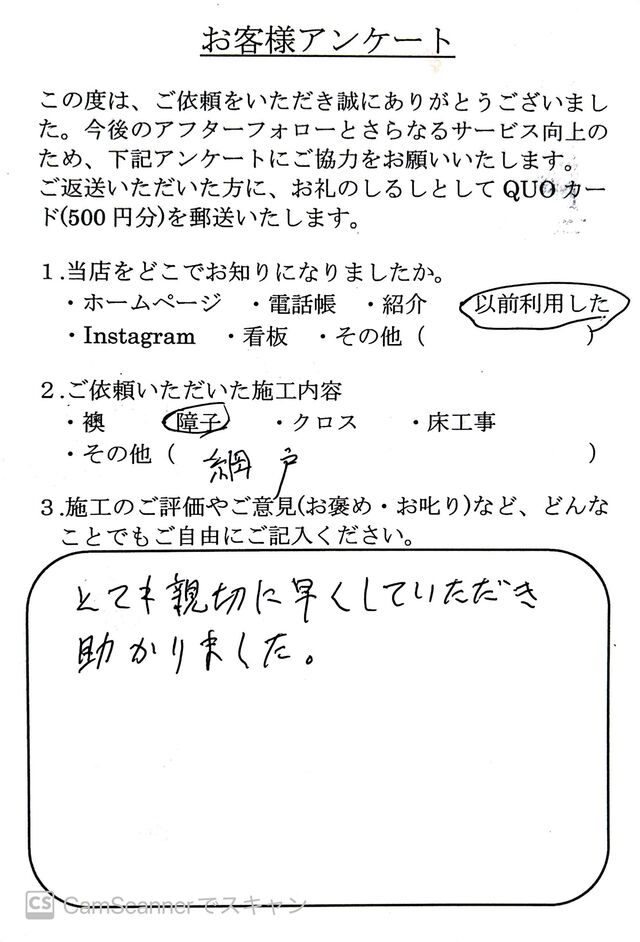 お客様アンケート
この度は、ご依頼をいただき誠にありがとうございまし
た。今後のアフターフォローとさらなるサービス向上の
ため、下記アンケートにご協力をお願いいたします。
ご返送いただいた方に、お礼のしるしとして QUO カー
ド(500 円分)を郵送いたします。
1.当店をどこでお知りになりましたか。
・ホームページ ・電話帳 ・紹介 ・以前利用した
・Instagram ・看板 ・その他（ ）
2.ご依頼いただいた施工内容
・襖 ・障子 ・クロス ・床工事
・その他（ 網戸 ）
3.施工のご評価やご意見(お褒め・お叱り)など、どんな
ことでもご自由にご記入ください。
とても親切に早くしていただき
助かりました。
CS CamScannerでスキャン